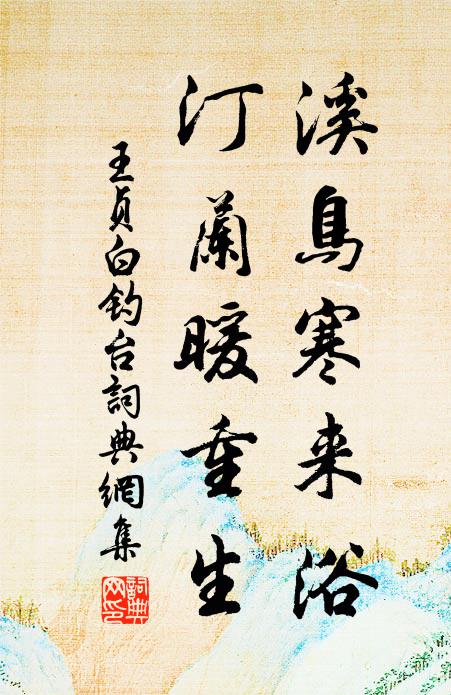 溪鳥寒来浴
汀蘭暖重生
王貞白钓台詞典網集
詞典网印